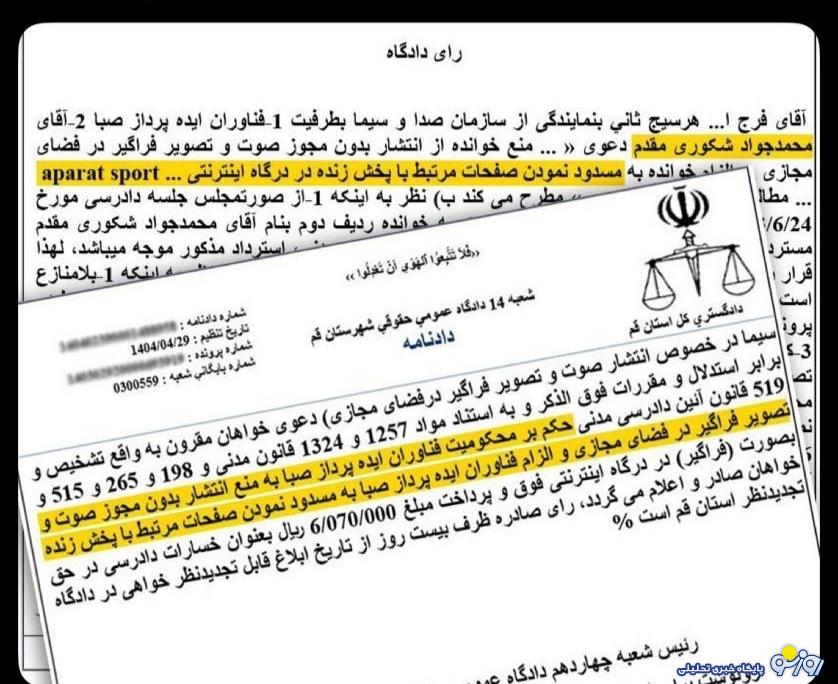 رای دادگاه
آقای فرج ا... هرسیج ثاني بنمایندگی از سازمان صدا و سیما بطرفیت 1-فناوران ایده پرداز صبا 2-آقای
محمدجواد شکوری مقدم دعوی « ... منع خوانده از انتشار بدون مجوز صوت و تصویر فراگیر در فضای
مجازی و الزام خوانده به مسدود نمودن صفحات مرتبط با پخش زنده در درگاه اینترنتی ... aparat sport
... مطرح می کند ب) نظر به اینکه 1-از صورتمجلس جلسه دادرسی مورخ
6/24/ خوانده ردیف دوم بنام آقای محمدجواد شکوری مقدم
مسترد استرداد مذکور موجه میباشد، لهذا
قرار اینکه 1-بلامنازع
است
«فَلَا تَتَّبِعُوا الْهَوَىٰ أَنْ تَعْدِلُوا»
دادگستري کل استان قم
شعبه 14 دادگاه عمومي حقوقي شهرستان قم
دادنامه
شماره دادنامه :
تاریخ تنظیم : 1404/04/29
شماره پرونده :
شماره بایگاني شعبه : 0300559
سیما در خصوص انتشار صوت و تصویر فراگیر درفضای مجازی) دعوی خواهان مقرون به واقع تشخیص و
برابر استدلال و مقررات فوق الذکر و به استناد مواد 1257 و 1324 قانون مدنی و 198 و 265 و 515 و
519 قانون آئین دادرسی مدنی حکم بر محکومیت فناوران ایده پرداز صبا به منع انتشار بدون مجوز صوت و
تصویر فراگیر در فضای مجازی و الزام فناوران ایده پرداز صبا به مسدود نمودن صفحات مرتبط با پخش زنده
بصورت (فراگیر) در درگاه اینترنتی فوق و پرداخت مبلغ 6/070/000 ریال بعنوان خسارات دادرسی در حق
خواهان صادر و اعلام می گردد، رای صادره ظرف بیست روز از تاریخ ابلاغ قابل تجدیدنظر خواهی در دادگاه
تجدیدنظر استان قم است %
رئیس شعبه چهاردهم دادگاه
روزنو
پایگاه خبری تحلیلی